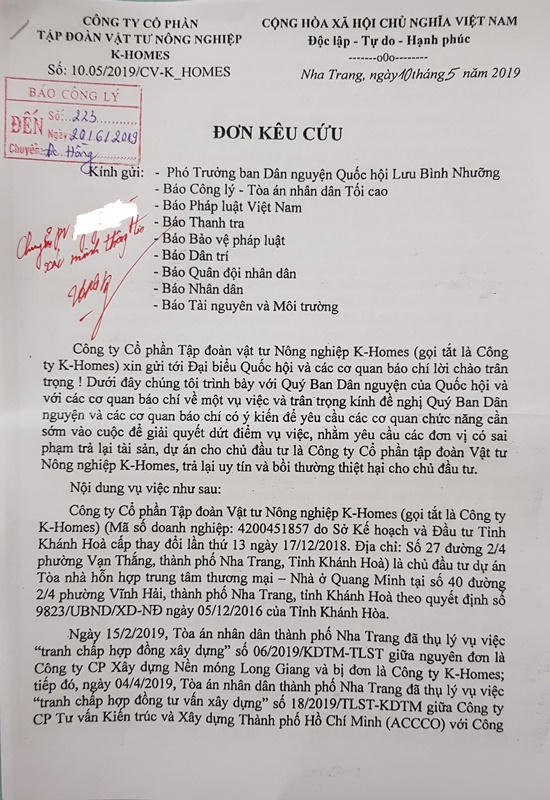 CÔNG TY CỔ PHẦN
TẬP ĐOÀN VẬT TƯ NÔNG NGHIỆP
K-HOMES
Số: 10.05/2019/CV-K_HOMES
CỘNG HÒA XÃ HỘI CHỦ NGHĨA VIỆT NAM
Độc lập - Tự do - Hạnh phúc
-------o0o-------
Nha Trang, ngày 10 tháng 5 năm 2019
BÁO CÔNG LÝ
ĐẾN
Số: 223
Ngày 20/6/2019
Chuyển: Đc Hồng
ĐƠN KÊU CỨU
Kính gửi: - Phó Trưởng ban Dân nguyện Quốc hội Lưu Bình Nhưỡng
- Báo Công lý - Tòa án nhân dân Tối cao
- Báo Pháp luật Việt Nam
- Báo Thanh tra
- Báo Bảo vệ pháp luật
- Báo Dân trí
- Báo Quân đội nhân dân
- Báo Nhân dân
- Báo Tài nguyên và Môi trường
Chuyển pv
xác minh thông tin
Công ty Cổ phần Tập đoàn vật tư Nông nghiệp K-Homes (gọi tắt là Công
ty K-Homes) xin gửi tới Đại biểu Quốc hội và các cơ quan báo chí lời chào trân
trọng ! Dưới đây chúng tôi trình bày với Quý Ban Dân nguyện của Quốc hội và
với các cơ quan báo chí về một vụ việc và trân trọng kính đề nghị Quý Ban Dân
nguyện và các cơ quan báo chí có ý kiến để yêu cầu các cơ quan chức năng cần
sớm vào cuộc để giải quyết dứt điểm vụ việc, nhằm yêu cầu các đơn vị có sai
phạm trả lại tài sản, dự án cho chủ đầu tư là Công ty Cổ phần tập đoàn Vật tư
Nông nghiệp K-Homes, trả lại uy tín và bồi thường thiệt hại cho chủ đầu tư.
Nội dung vụ việc như sau:
Công ty Cổ phần Tập đoàn Vật tư Nông nghiệp K-Homes (gọi tắt là Công ty
K-Homes) (Mã số doanh nghiệp: 4200451857 do Sở Kế hoạch và Đầu tư Tỉnh
Khánh Hoà cấp thay đổi lần thứ 13 ngày 17/12/2018. Địa chỉ: Số 27 đường 2/4
phường Vạn Thắng, thành phố Nha Trang, Tỉnh Khánh Hoà) là chủ đầu tư dự án
Tòa nhà hỗn hợp trung tâm thương mại – Nhà ở Quang Minh tại số 40 đường
2/4 phường Vĩnh Hải, thành phố Nha Trang, tỉnh Khánh Hoà theo quyết định số
9823/UBND/XD-NĐ ngày 05/12/2016 của Tỉnh Khánh Hòa.
Ngày 15/2/2019, Tòa án nhân dân thành phố Nha Trang đã thụ lý vụ việc
“tranh chấp hợp đồng xây dựng” số 06/2019/KDTM-TLST giữa nguyên đơn là
Công ty CP Xây dựng Nền móng Long Giang và bị đơn là Công ty K-Homes;
tiếp đó, ngày 04/4/2019, Tòa án nhân dân thành phố Nha Trang đã thụ lý vụ việc
“tranh chấp hợp đồng tư vấn xây dựng” số 18/2019/TLST-KDTM giữa Công ty
CP Tư vấn Kiến trúc và Xây dựng Thành phố Hồ Chí Minh (ACCCO) với Công